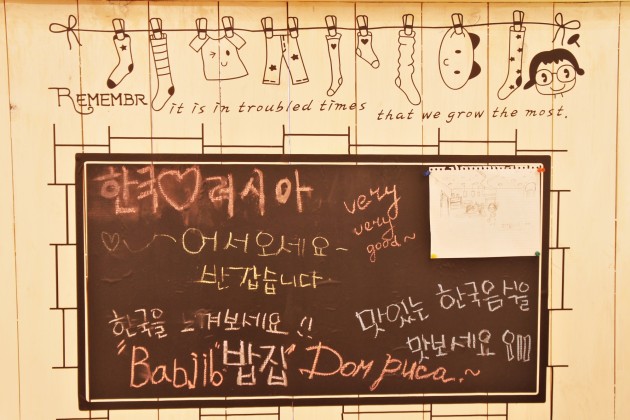 REMEMBR it is in troubled times that we grow the most.
한국♡러시아
very
very
good~
♡ 어서오세요~
반갑습니다
한국을 느껴보세요!!
맛있는 한국음식을
맛보세요 !!!
"Babjib" 밥집" Dom риса.~